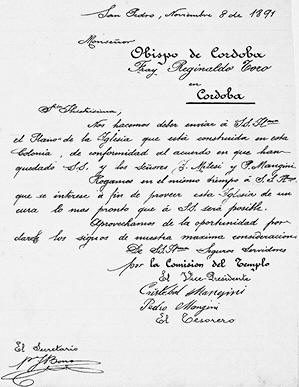 San Pedro, Noviembre 8 de 1891
Monseñor
Obispo de Cordoba
Fray Reginaldo Toro
en
Cordoba
Nos hacemos deber enviar á
el Plano de la Iglesia que está construida en esta
Colonia, de conformidad al acuerdo en que han
quedado S.S. y los Señores J. Milesi y P. Mangini
Rogamos en el mismo tiempo á
que se interese a fin de proveer esta Iglesia de un
cura lo mas pronto que á SS. será posible.
Aprovechamos de la oportunidad por
darle los signos de nuestra maxima consideracion
De Seguros Servidores
por la Comision del Templo
El Vice-Presidente
Cristobal Mangini
Pedro Mangini
El Tesorero
El Secretario